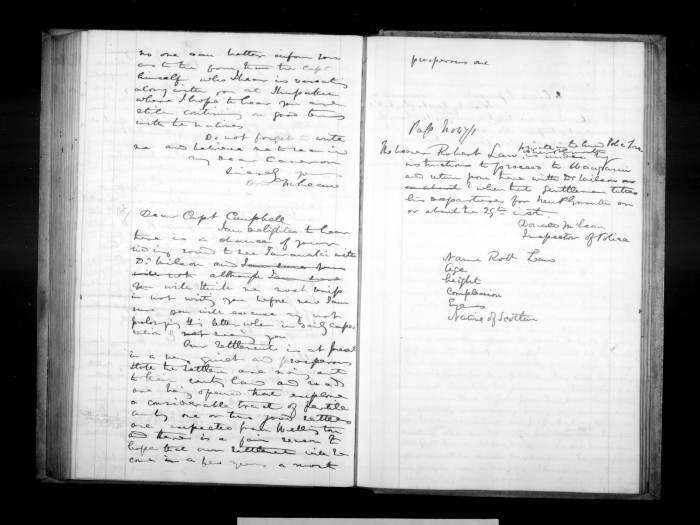 no one can better inform you
as to the from the Capt
himself who I hear is
along with you at
where I hope to hear you are
still continuing on good terms
with the natives
Do not forget to write
me and believe me to remain
my dear Cameron
Sincerely yours
Don McLean
Dear Capt Campbell
I am delighted to hear
there is a chance of your
riding round to see Taranaki with
Dr Wilson and I am sure you
will not although I am sure
you will think me most
in not writing you before now I am
sure you will excuse my not
prolonging this letter when in daily expec
tation of seeing you
Our settlement is at present
in a very quiet and prosperous
state the settlers are
to their land and roads
are being opened that explore
a considerable tract of fertile
country one or two more settlers
are expected from Wellington
and there is a fair reason to
hope that our settlement will be
come in a few years a most
prosperous one
Pass No 47/1
private in the Armed Police Force
The bearer Robert Law is under
instructions to proceed to Wanganui
and return from here with Dr Wilson
when that gentleman takes
his departure for New Plymouth on
or about the 25th inst.
Donald McLean
Inspector of Police
Name Robt Law
Age
height
Complexion
Eyes
Native of Scotland